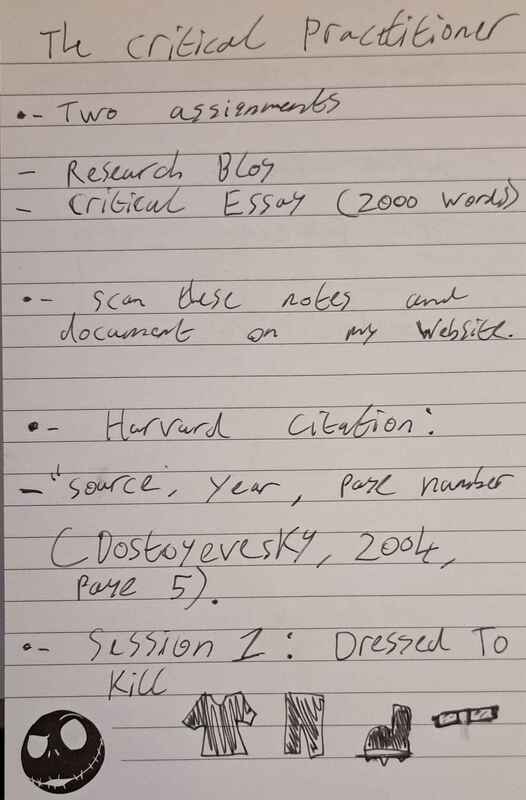 The Critical Practitioner
•- Two assignments
- Research Blog
- Critical Essay (2000 words)
•- scan these notes and
document on my website.
•- Harvard Citation:
- "source", year, page number
(Dostoyevesky, 2004,
page 5).
•- Session 1: Dressed To
Kill